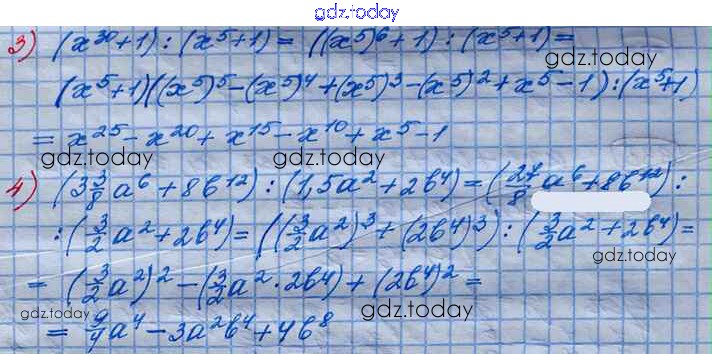 gdz.today
3) (x³⁰+1) : (x⁵+1) = ((x⁵)⁶+1) : (x⁵+1) =
gdz.today
(x⁵+1)((x⁵)⁵-(x⁵)⁴+(x⁵)³-(x⁵)²+x⁵-1) : (x⁵+1)
= x²⁵-x²⁰+x¹⁵-x¹⁰+x⁵-1
gdz.today gdz.today
4) (3 3/8 a⁶+8b¹²) : (1,5a²+2b⁴) = (27/8 a⁶+8b¹²) :
: (3/2 a²+2b⁴) = ((3/2 a²)³+(2b⁴)³) : (3/2 a²+2b⁴) =
gdz.today
= (3/2 a²)²-(3/2 a²·2b⁴)+(2b⁴)² =
gdz.today gdz.today
= 9/4 a⁴-3a²b⁴+4b⁸